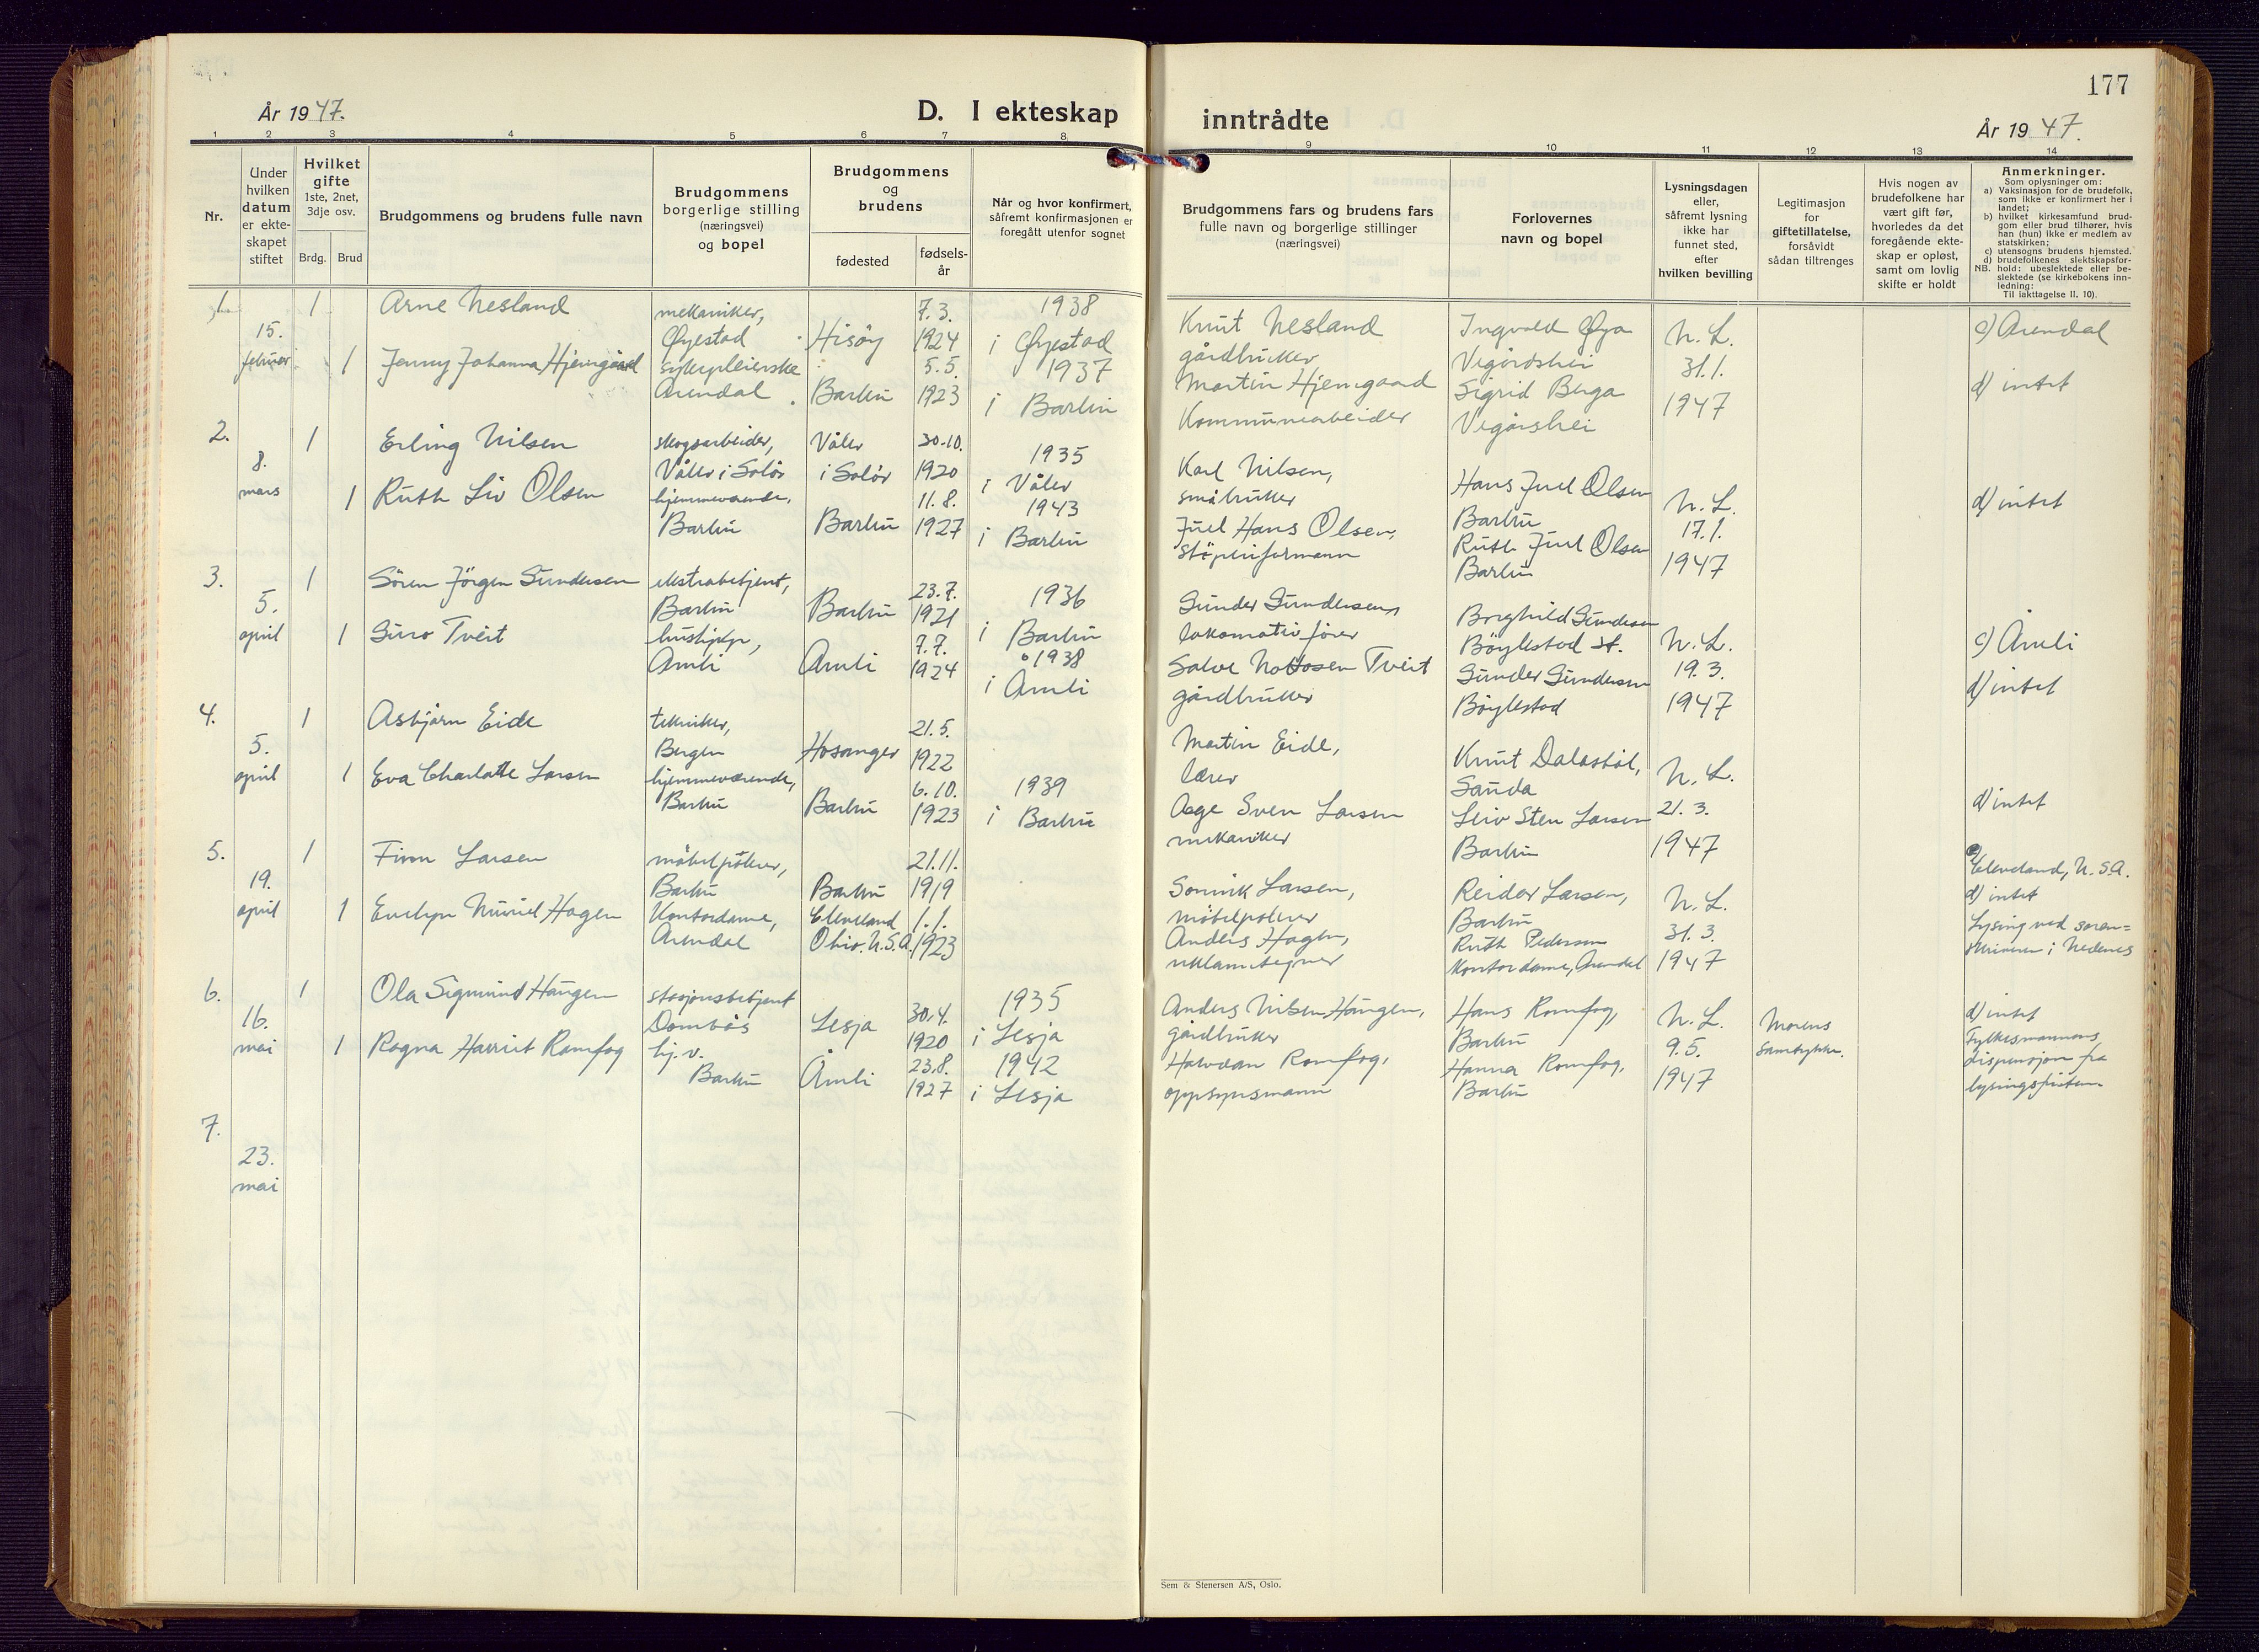 177
År 1947.
D. I ekteskap
inntrådte
År 1947.
1 2 3 4 5 6 7 8 9 10 11 12 13 14
Nr.
Under
hvilken
datum
er ekte-
skapet
stiftet
Hvilket
gifte
1ste, 2net,
3dje osv.
Brdg. Brud
Brudgommens og brudens fulle navn
Brudgommens
borgerlige stilling
(næringsvei)
og bopel
Brudgommens
og
brudens
fødested
fødsels-
år
Når og hvor konfirmert,
såfremt konfirmasjonen er
foregått utenfor sognet
Brudgommens fars og brudens fars
fulle navn og borgerlige stillinger
(næringsvei)
Forlovernes
navn og bopel
Lysningsdagen
eller,
såfremt lysning
ikke har
funnet sted,
efter
hvilken bevilling
Legitimasjon
for
giftetillatelse,
forsåvidt
sådan tiltrenges
Hvis nogen av
brudefolkene har
vært gift før,
hvorledes da det
foregående ekte-
skap er opløst,
samt om lovlig
skifte er holdt
Anmerkninger.
Som oplysninger om:
a) Vaksinasjon for de brudefolk,
som ikke er konfirmert her i
landet;
b) hvilket kirkesamfund brud-
gom eller brud tilhører, hvis
han (hun) ikke er medlem av
statskirken;
c) utensogns brudens hjemsted.
d) brudefolkenes slektskapsfor-
NB. hold: ubeslektede eller be-
slektede (se kirkebokens inn-
ledning:
Til iakttagelse II. 10).
1.
15.
februar
1
1
Arne Nesland
Jenny Johanna Hjemgaard
mekaniker,
Øyestad
sykepleierske
Arendal
Hisøy
Barbu
7.3.
1924
5.5.
1923
1938
i Øyestad
1937
i Barbu
Knut Nesland
gårdbruker
Martin Hjemgaard
Kommunearbeider
Ingvald Øya
Vegårdshei
Sigrid Berga
Vegårshei
N. L.
31.1.
1947
c) Arendal
d) intet
2.
8.
mars
1
1
Erling Nilsen
Ruth Liv Olsen
skogsarbeider,
Våler i Solør
hjemmeværende,
Barbu
Våler
i Solør
Barbu
30.10.
1920
11.8.
1927
1935
i Våler
1943
i Barbu
Karl Nilsen,
småbruker
Juel Hans Olsen,
støperiformann
Hans Juel Olsen
Barbu
Ruth Juel Olsen
Barbu
N. L.
17.1.
1947
d) intet
3.
5.
april
1
1
Søren Jørgen Sundersen
Siro Tveit
ekstrabetjent,
Barbu
hushjelp,
Åmli
Barbu
Åmli
23.7.
1921
7.7.
1924
1936
i Barbu
1938
i Åmli
Sunder Sundersen,
lokomotivfører
Salve Tveit
gårdbruker
Borghild Sundersen
Bøylestad st.
Sunder Sundersen
Bøylestad
N. L.
19.3.
1947
c) Åmli
d) intet
4.
5.
april
1
1
Asbjørn Eide
Eva Charlotte Larsen
tekniker,
Bergen
hjemmeværende,
Barbu
Hosanger
Barbu
21.5.
1922
6.10.
1923
1939
i Barbu
Martin Eide,
lærer
Aage Sven Larsen
mekaniker
Knut Dalastøl,
Sauda
Leiv Sten Larsen
Barbu
N. L.
21.3.
1947
d) intet
5.
19.
april
1
1
Finn Larsen
Evelyn Muriel Hagen
møbelpolerer,
Barbu
Kontordame,
Arendal
Barbu
Cleveland
Ohio. U.S.A.
21.11.
1919
1.1.
1923
Larsen,
møbelpolerer
Anders Hagen,
reklametegner
Reidar Larsen,
Barbu
Ruth Pedersen
Kontordame, Arendal
N. L.
31.3.
1947
Cleveland, U.S.A.
d) intet
Lysing ved soren=
skriveren i Nedenes
6.
16.
mai
1
1
Ola Sigmund Haugen
Ragna Harriet Romfog
stasjonsbetjent
Dombås
hj.v.
Barbu
Lesja
Åmli
30.4.
1920
23.8.
1927
1935
i Lesja
1942
i Lesja
Anders Nilsen Haugen,
gårdbruker
Halvdan Romfog,
oppsynsmann
Hans Romfog,
Barbu
Hanna Romfog,
Barbu
N. L.
9.5.
1947
Morens
Samtykke.
d) intet
Fylkesmannens
dispensasjon fra
lysingsfristen
7.
23.
mai
Sem & Stenersen A/S, Oslo.